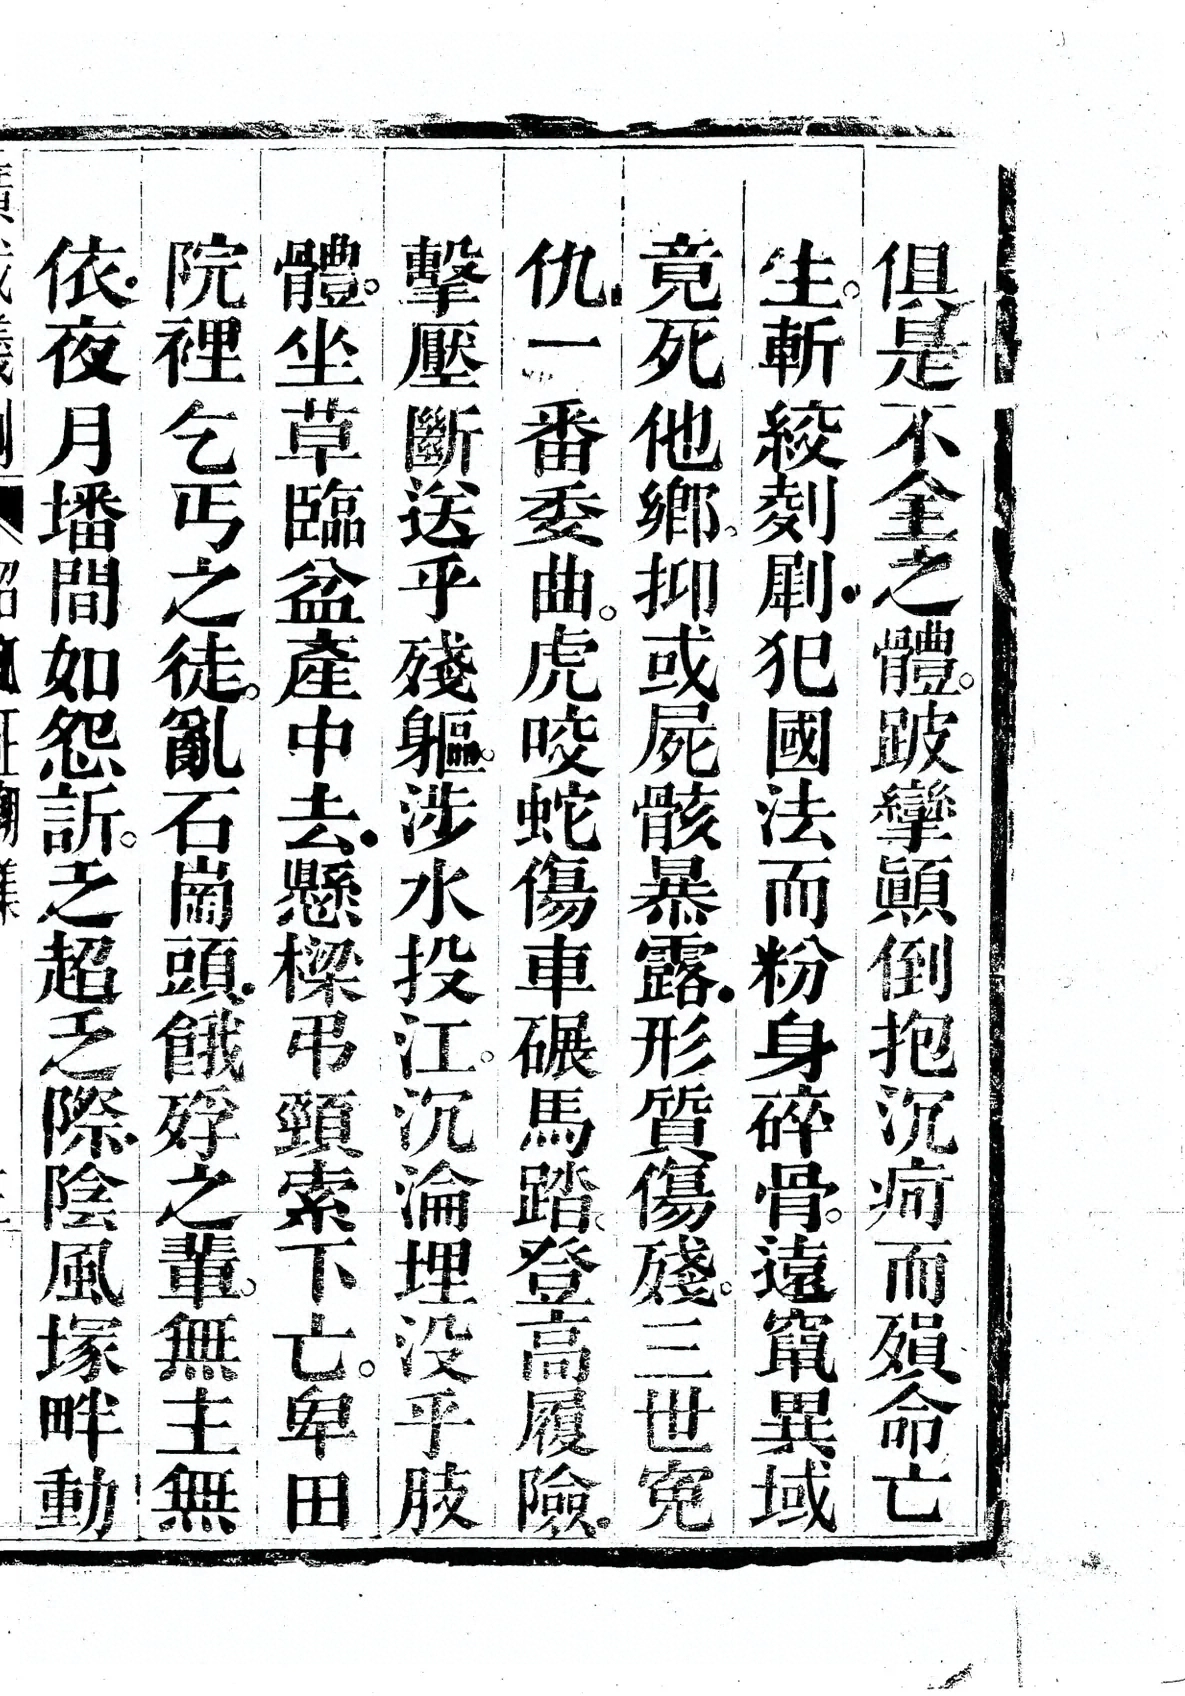 俱是不全之體。跛攣顚倒抱沉疴而殞命亡
生。斬絞剡剭犯國法而粉身碎骨。遠竄異域
竟死他鄉。抑或屍骸暴露形質傷殘。三世冤
仇一番委曲。虎咬蛇傷車碾馬踏。登高履險
擊壓斷送乎殘軀。涉水投江。沉淪埋没乎肢
體。坐草臨盆產中去懸樑弔頸索下亡。卑田
院裡乞丐之徒。亂石崗頭餓殍之輩。無主無
依夜月墦間如怨訴。之超之際陰風塚畔動